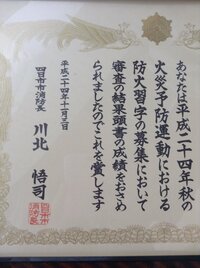 あなたは平成二十四年秋の
火災予防運動における
防火習字の募集において
審査の結果頭書の成績をおさめ
られましたのでこれを賞します
平成二十四年十一月三日
四日市市消防長 川北 悟司
四日市市
消防長